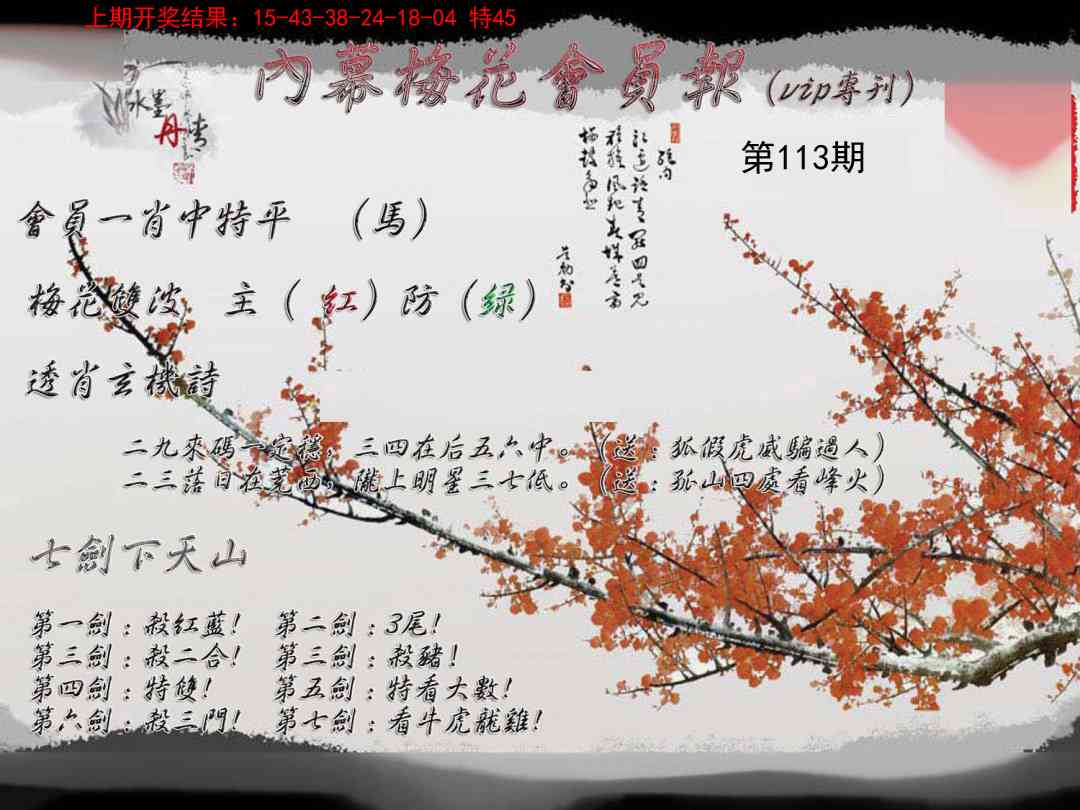 上期开奖结果：15-43-38-24-18-04 特45
內幕梅花會員報(vip專刊)
水墨
丹青
第113期
會員一肖中特平 （馬）
梅花雙波 主（紅）防（绿）
透肖玄機詩
二九來碼一定穩，三四在后五六中。（送：狐假虎威騙過人）
二三落日在荒西，隴上明星三七低。（送：孤山四處看峰火）
七劍下天山
第一劍：殺紅藍！ 第二劍：3尾！
第三劍：殺二合！ 第三劍：殺豬！
第四劍：特雙！ 第五劍：特看大數！
第六劍：殺三門！ 第七劍：看牛虎龍雞！